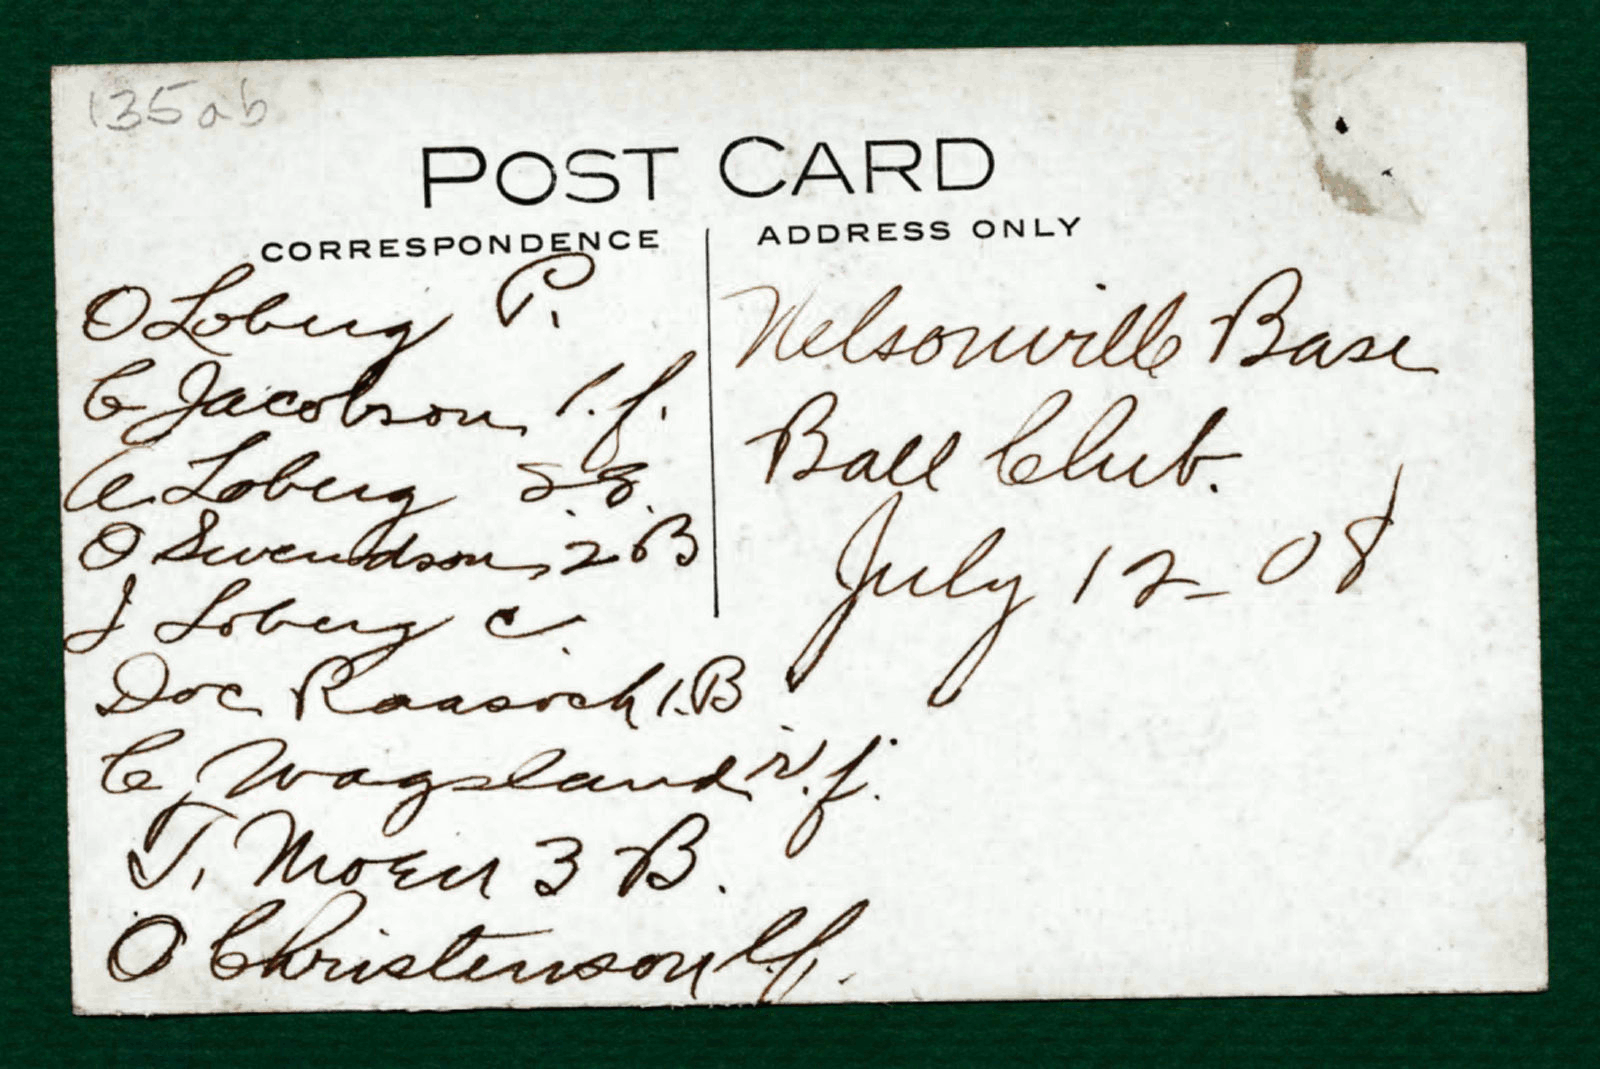 135ab
POST CARD
CORRESPONDENCE
ADDRESS ONLY
O Loberg P.
C Jacobson l.f.
A. Loberg S.S.
O Swendson 2B
J Loberg C
Doc Raasoch 1.B
C Wogsland r.f.
T. Moen 3 B.
O Christenson c.f.
Nelsonville Base
Ball Club.
July 12-08